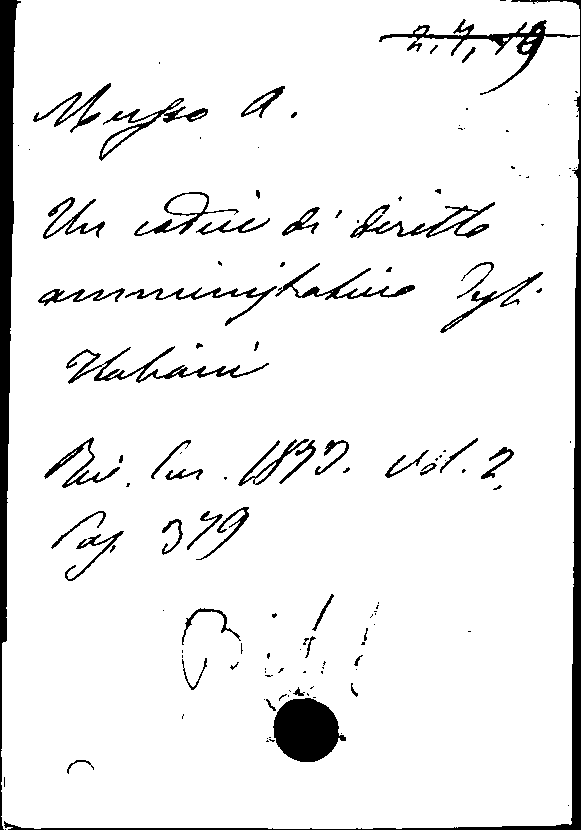 2.7.19
Musso A.
Un codice di diritto
amministrativo degli
Italiani
Riv. Cur. 1877. vol. 2
Pag. 379
Bibl